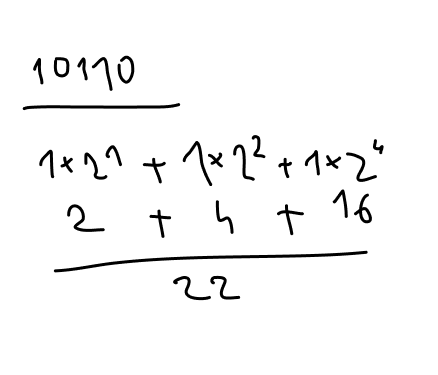 10110
1×2¹ + 1×2² + 1×2⁴
2 + 4 + 16
22